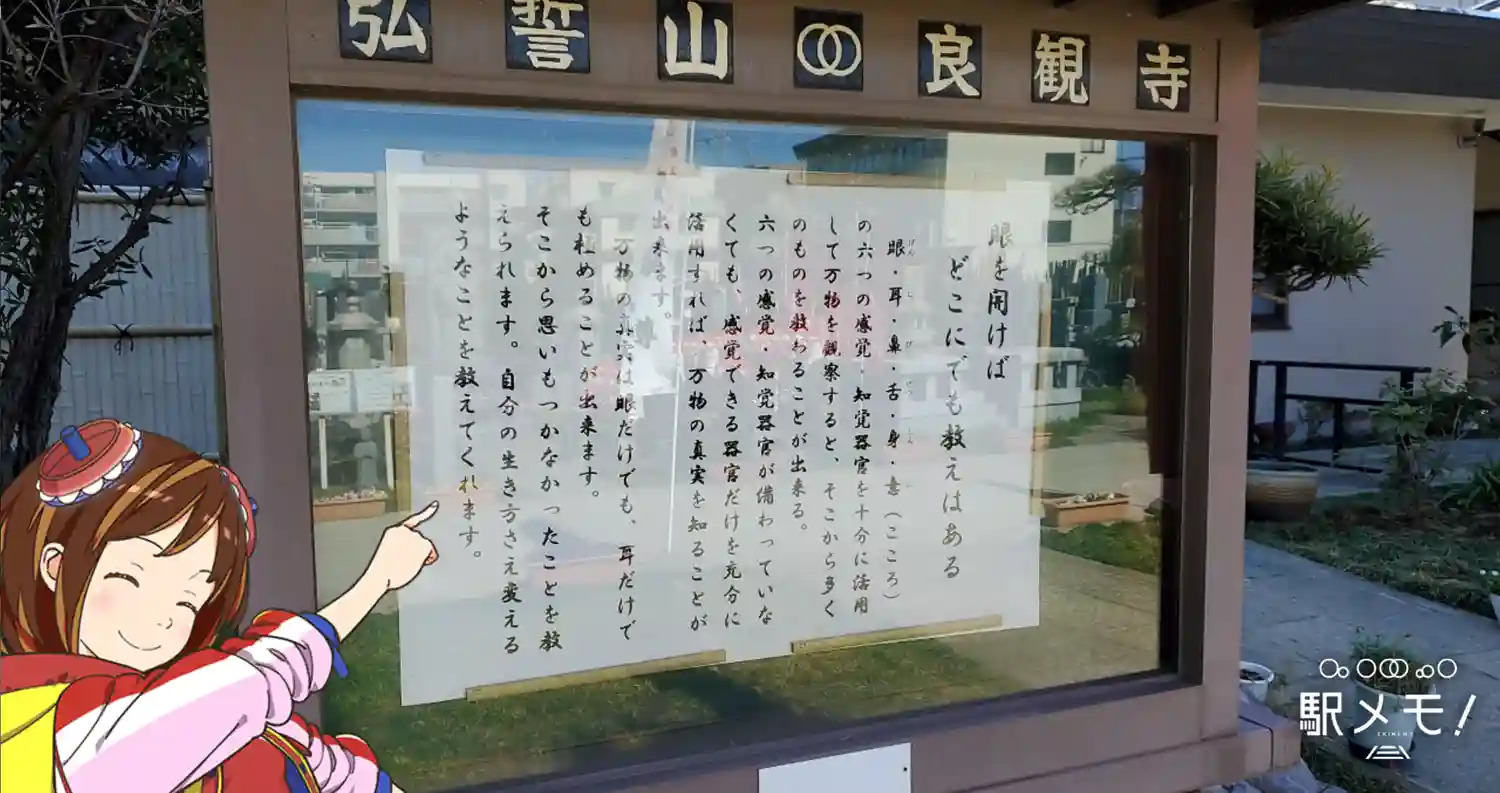 弘誓山良観寺
眼を開けば
どこにでも教えはある
眼・耳・鼻・舌・身・意(こころ)
の六つの感覚・知覚器官を十分に活用
して万物を観察すると、そこから多く
のものを教わることが出来る。
六つの感覚・知覚器官が備わっていな
くても、感覚できる器官だけを充分に
活用すれば、万物の真実を知ることが
出来ます。
万物の真実は眼だけでも、耳だけで
も極めることが出来ます。
そこから思いもつかなかったことを教
えられます。自分の生き方さえ変える
ようなことを教えてくれます。
駅メモ!
EKIMEMO